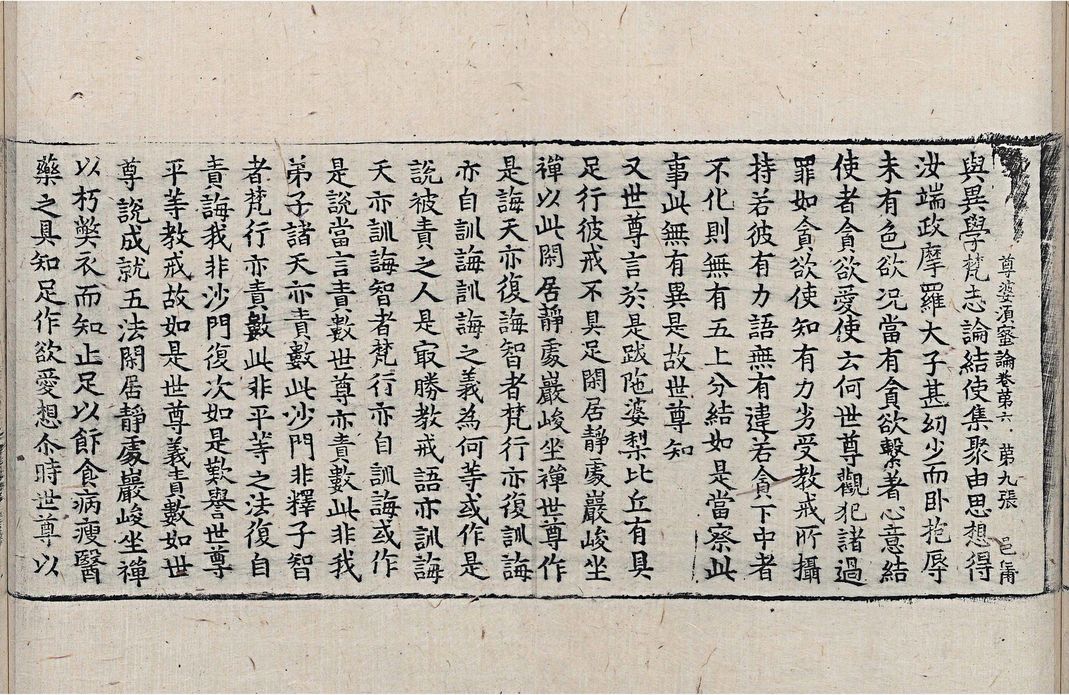 尊婆須蜜論卷第六 第九張 邑
與異學梵志論結使集聚由思想得
汝端政摩羅大子甚幼少而卧抱辱
未有色欲况當有貪欲繫著心意結
使者貪欲愛使云何世尊觀犯諸過
罪如貪欲使知有力劣受教戒所攝
持若彼有力語無有違若貪下中者
不化則無有五上分結如是當察此
事此無有異是故世尊知
又世尊言於是跋陁婆梨比丘有具
足行彼戒不具足閑居靜處巖峻坐
禪以此閑居靜處巖峻坐禪世尊作
是誨天亦復誨智者梵行亦復訓誨
亦自訓誨訓誨之義為何等或作是
說被責之人是寂勝教戒語亦訓誨
天亦訓誨智者梵行亦自訓誨或作
是說當言責數世尊亦責數此非我
弟子諸天亦責數此沙門非釋子智
者梵行亦責數此非平等之法復自
責誨我非沙門復次如是歎譽世尊
平等教戒故如是世尊義責數如世
尊說成就五法閑居靜處巖峻坐禪
以朽弊衣而知止足以飰食病瘦醫
藥之具知足作欲愛想尒時世尊以